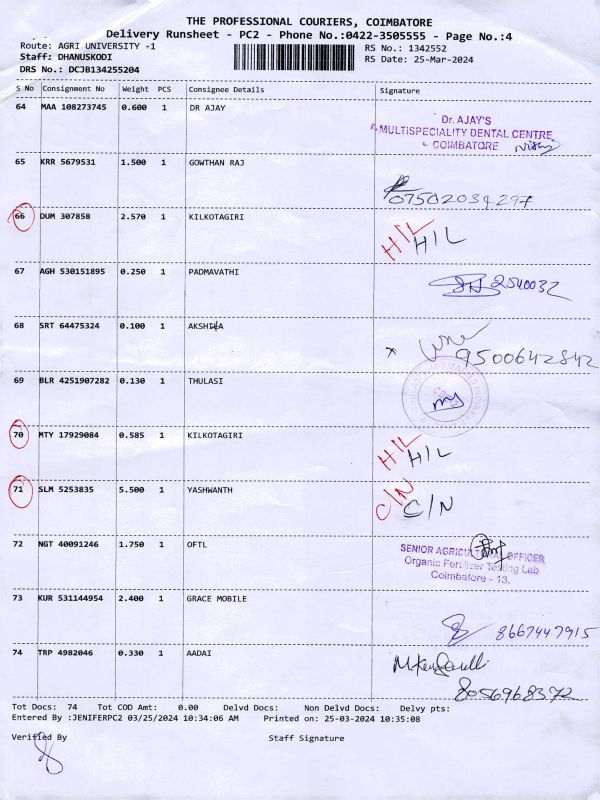 THE PROFESSIONAL COURIERS, COIMBATORE
Delivery Runsheet - PC2 - Phone No.:0422-3505555 - Page No.:4
Route: AGRI UNIVERSITY -1 RS No.: 1342552
Staff: DHANUSKODI RS Date: 25-Mar-2024
DRS No.: DCJB134255204
S No Consignment No Weight PCS Consignee Details Signature
64 MAA 108273745 0.600 1 DR AJAY
Dr. AJAY'S
MULTISPECIALITY DENTAL CENTRE
COIMBATORE
65 KRR 5679531 1.500 1 GOWTHAN RAJ
07502034297
66 DUM 307858 2.570 1 KILKOTAGIRI
H/L H/L
67 AGH 530151895 0.250 1 PADMAVATHI
2540032
68 SRT 64475324 0.100 1 AKSHI
x 9500642842
69 BLR 4251907282 0.130 1 THULASI
70 MTY 17929084 0.585 1 KILKOTAGIRI
H/L H/L
71 SLM 5253835 5.500 1 YASHWANTH
C/N C/N
72 NGT 40091246 1.750 1 OFTL
SENIOR AGRICULTURAL OFFICER
Organic Fertilizer Testing Lab
Coimbatore - 13.
73 KUR 531144954 2.400 1 GRACE MOBILE
8667447915
74 TRP 4982046 0.330 1 AADAI
8056968372
Tot Docs: 74 Tot COD Amt: 0.00 Delvd Docs: Non Delvd Docs: Delvy pts:
Entered By :JENIFERPC2 03/25/2024 10:34:06 AM Printed on: 25-03-2024 10:35:08
Verified By Staff Signature